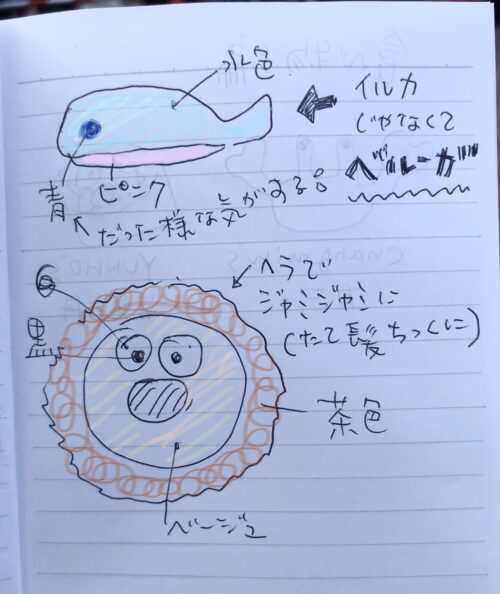 水色
イルカ
じゃなくて
ベルーガ
青
ピンク
だった様な気がする。
ヘラで
ジャミジャミに
(たて髪ちっくに)
黒
茶色
ベージュ